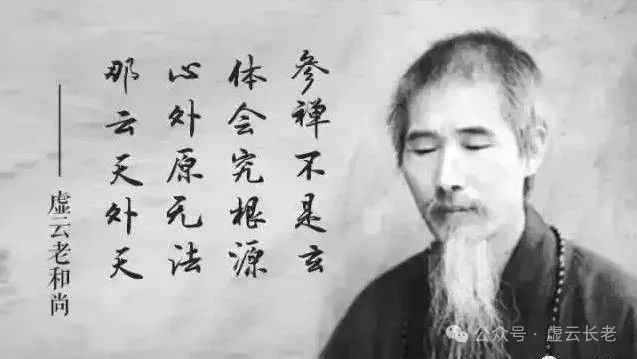 参禅不是玄
体会究根源
心外原无法
那云天外天
——虚云老和尚
公众号·虚云长老